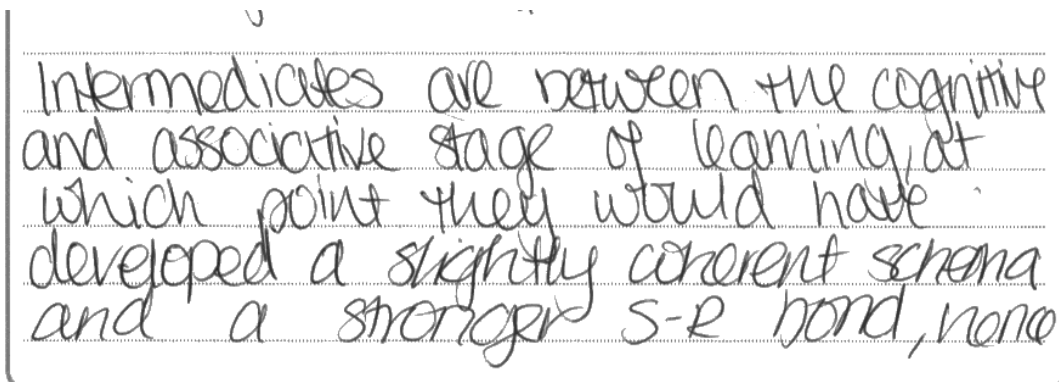 Intermediates are between the cognitive
and associative stage of learning, at
which point they would have
developed a slightly coherent schema
and a stronger S-R bond, hence